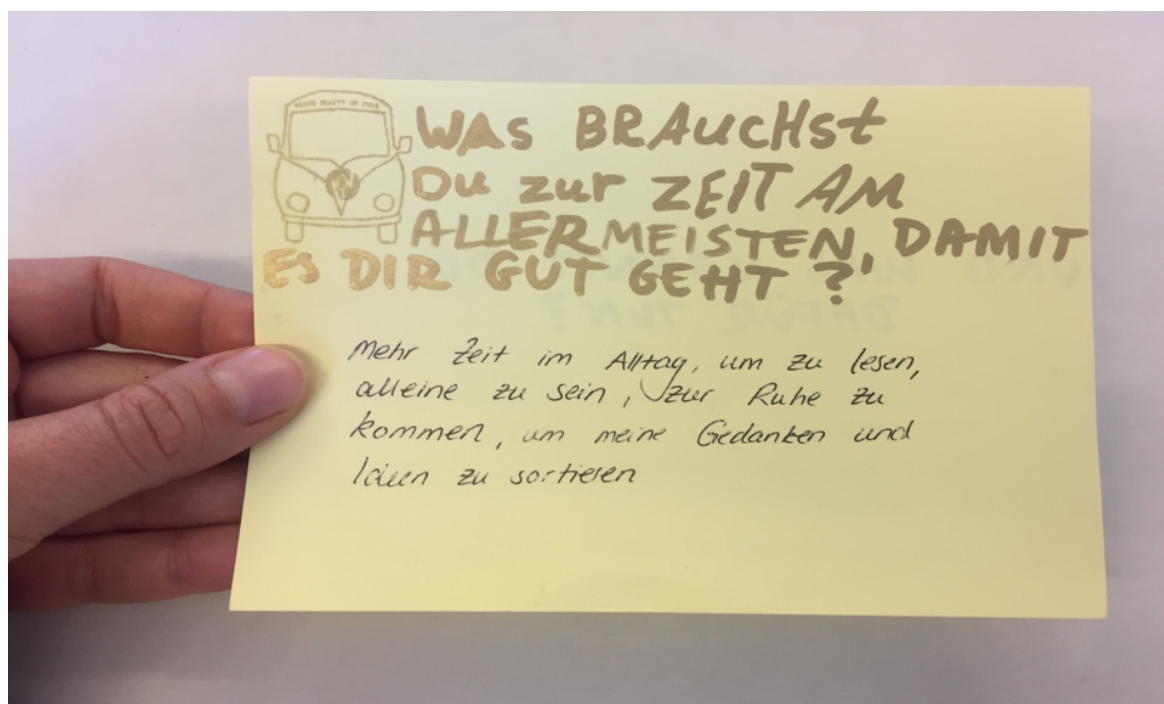 WAS BRAUCHST
DU ZUR ZEIT AM
ALLERMEISTEN, DAMIT
ES DIR GUT GEHT ?
Mehr Zeit im Alltag, um zu lesen,
alleine zu sein, zur Ruhe zu
kommen, um meine Gedanken und
Ideen zu sortieren